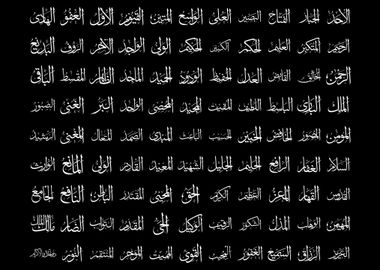 الأحد الجبار الفتاح البصير العلي الواسع المتين القيوم الأول العفو الهادي
الرحيم المتكبر العليم الكبير الحكيم الولي الواجد الآخر الرؤف البديع
الرحمن الخالق القابض العدل الحفيظ الودود الحميد الماجد الظاهر المقسط الباقي
الملك البارئ الباسط اللطيف المقيت المجيد المحصي الواحد البر الغني الصبور
المؤمن المصور الخافض الخبير الحسيب الباعث المبدئ الصمد المتعال المغني الرشيد
السلام الغفار الرافع الحليم الجليل الشهيد المعيد القادر الوالي المانع الوارث
القدوس القهار المعز العظيم الكريم الحق المحيي المقتدر الباطن النافع الجامع
المهيمن الوهاب المذل الشكور الرقيب الوكيل الحي المقدم التواب الضار مالك الملك
العزيز الرزاق السميع الغفور المجيب القوي المميت المؤخر المنتقم النور